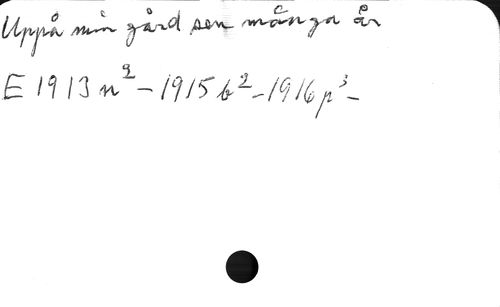 Uppå min gård sen många år
E 1913 n² – 1915 b² – 1916 p³ –